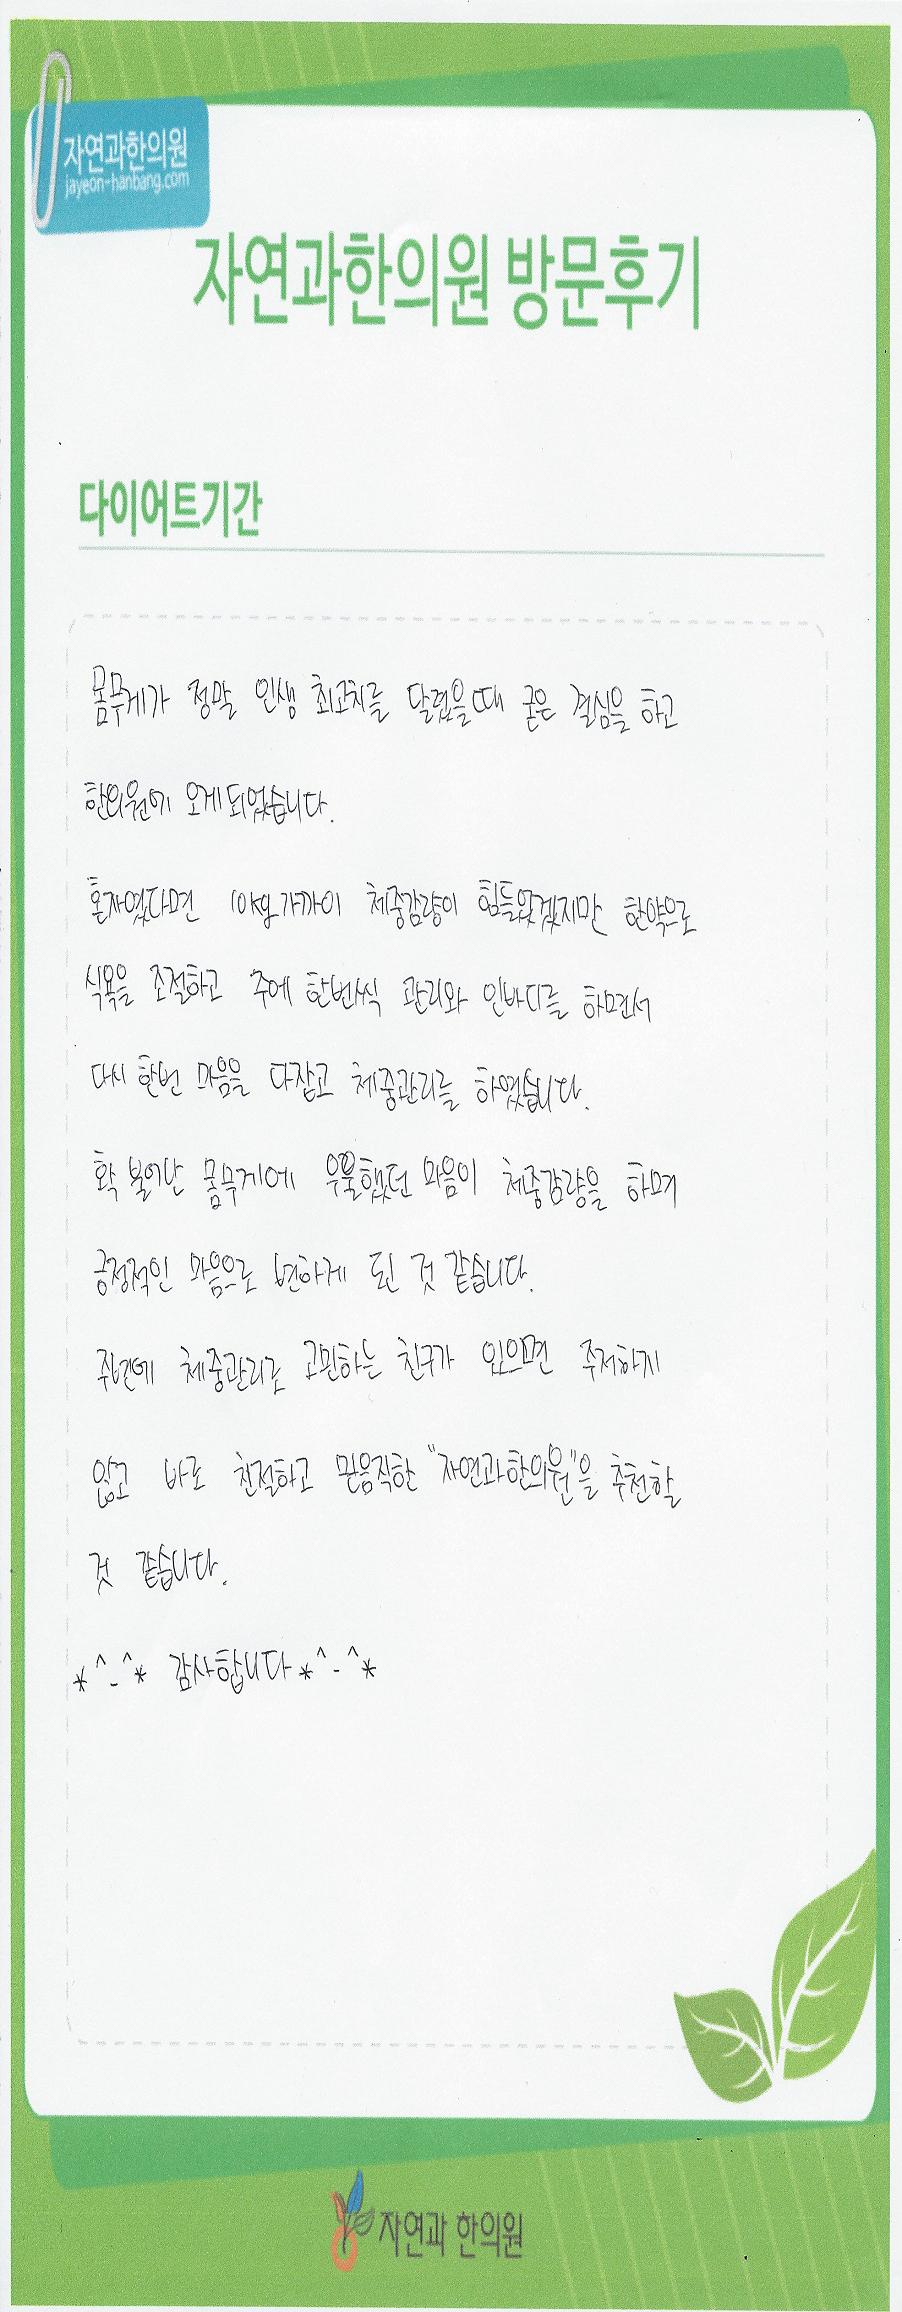 자연과한의원
jayeon-hanbang.com
자연과한의원 방문후기
다이어트기간
몸무게가 정말 인생 최고치를 달렸을때 굳은 결심을 하고
한의원에 오게되었습니다.
혼자였다면 10kg 가까이 체중감량이 힘들었겠지만 한약으로
식욕을 조절하고 주에 한번씩 관리와 인바디를 하면서
다시 한번 마음을 다잡고 체중관리를 하였습니다.
확 불어난 몸무게에 우울했던 마음이 체중감량을 하며
긍정적인 마음으로 변하게 된 것 같습니다.
주변에 체중관리로 고민하는 친구가 있으면 주저하지
않고 바로 친절하고 믿음직한 "자연과한의원"을 추천할
것 같습니다.
*^-^* 감사합니다 *^-^*
자연과 한의원